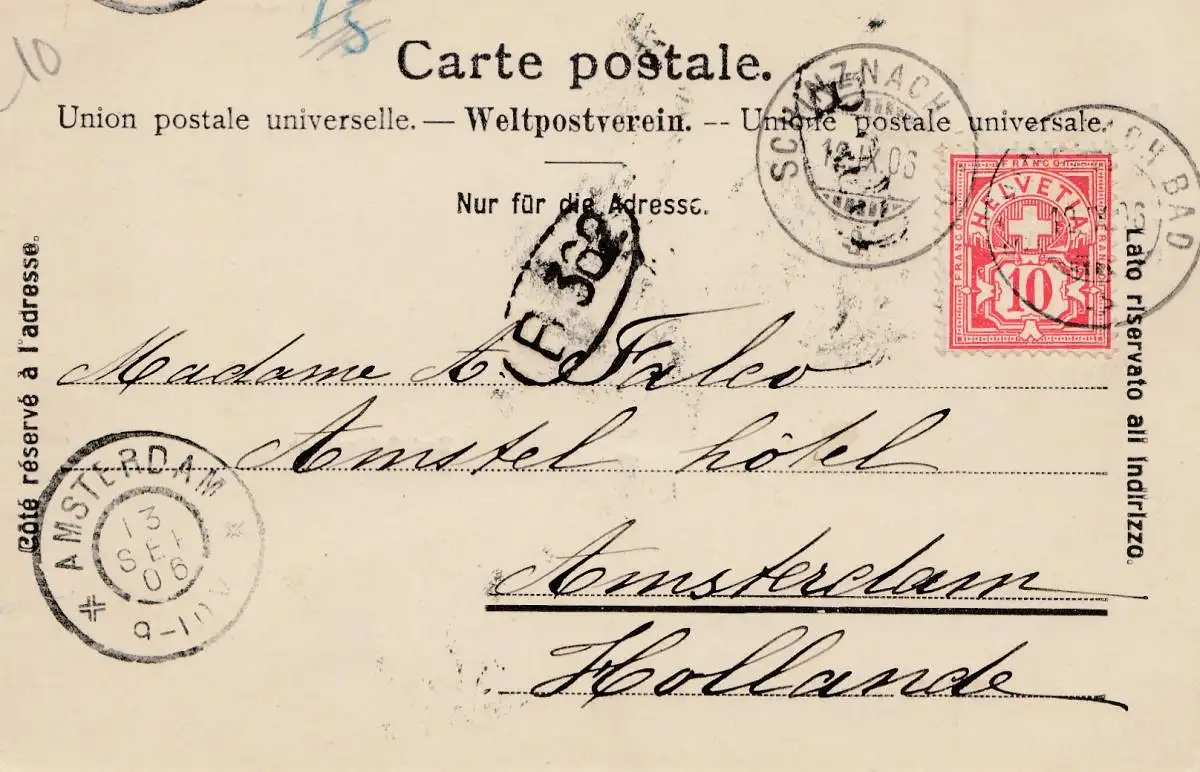 10
15
Carte postale.
Union postale universelle. — Weltpostverein. -- Unione postale universale.
Nur für die Adresse.
SCHINZNACH
12.IX.06
BAD
FRANCO
HELVETIA
FRANCO
FRANCO
10
B 362
Côté réservé à l'adresse.
Lato riservato all indirizzo.
Madame A. Falco
Amstel hôtel
Amsterdam
Hollande
AMSTERDAM
13
SEP
06
9-10V